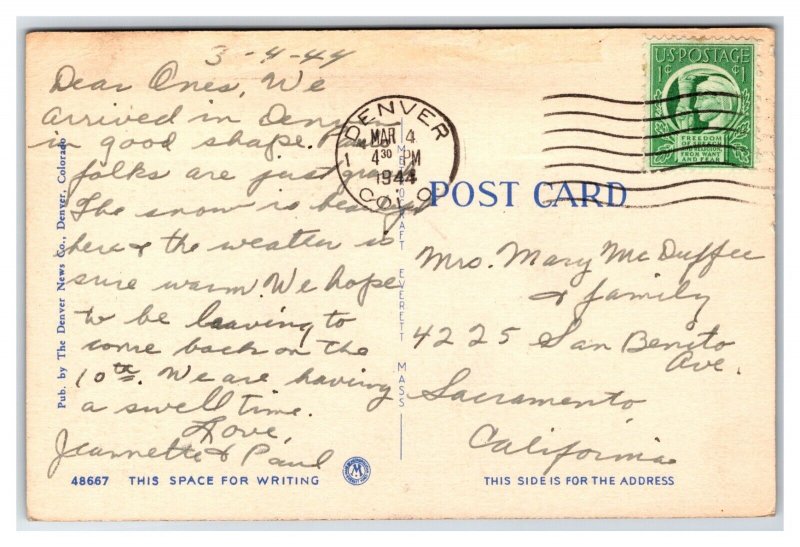 3-4-44
Dear Ones, We
arrived in Denver
in good shape. Paul
folks are just grand
The snow is heavy
here & the weather is
sure warm We hope
to be leaving to
come back on the
10th. We are having
a swell time.
Love,
Jeannette & Paul
48667 THIS SPACE FOR WRITING
Pub. by The Denver News Co., Denver, Colorado
METROCRAFT EVERETT MASS
DENVER
MAR 4
430 PM
1944
COLO
1
U.S. POSTAGE
1¢ ¢1
FREEDOM
OF SPEECH
AND RELIGION,
FROM WANT
AND FEAR
POST CARD
Mrs. Mary McDuffee
& family
4225 San Benito
Ave.
Sacramento
California
THIS SIDE IS FOR THE ADDRESS